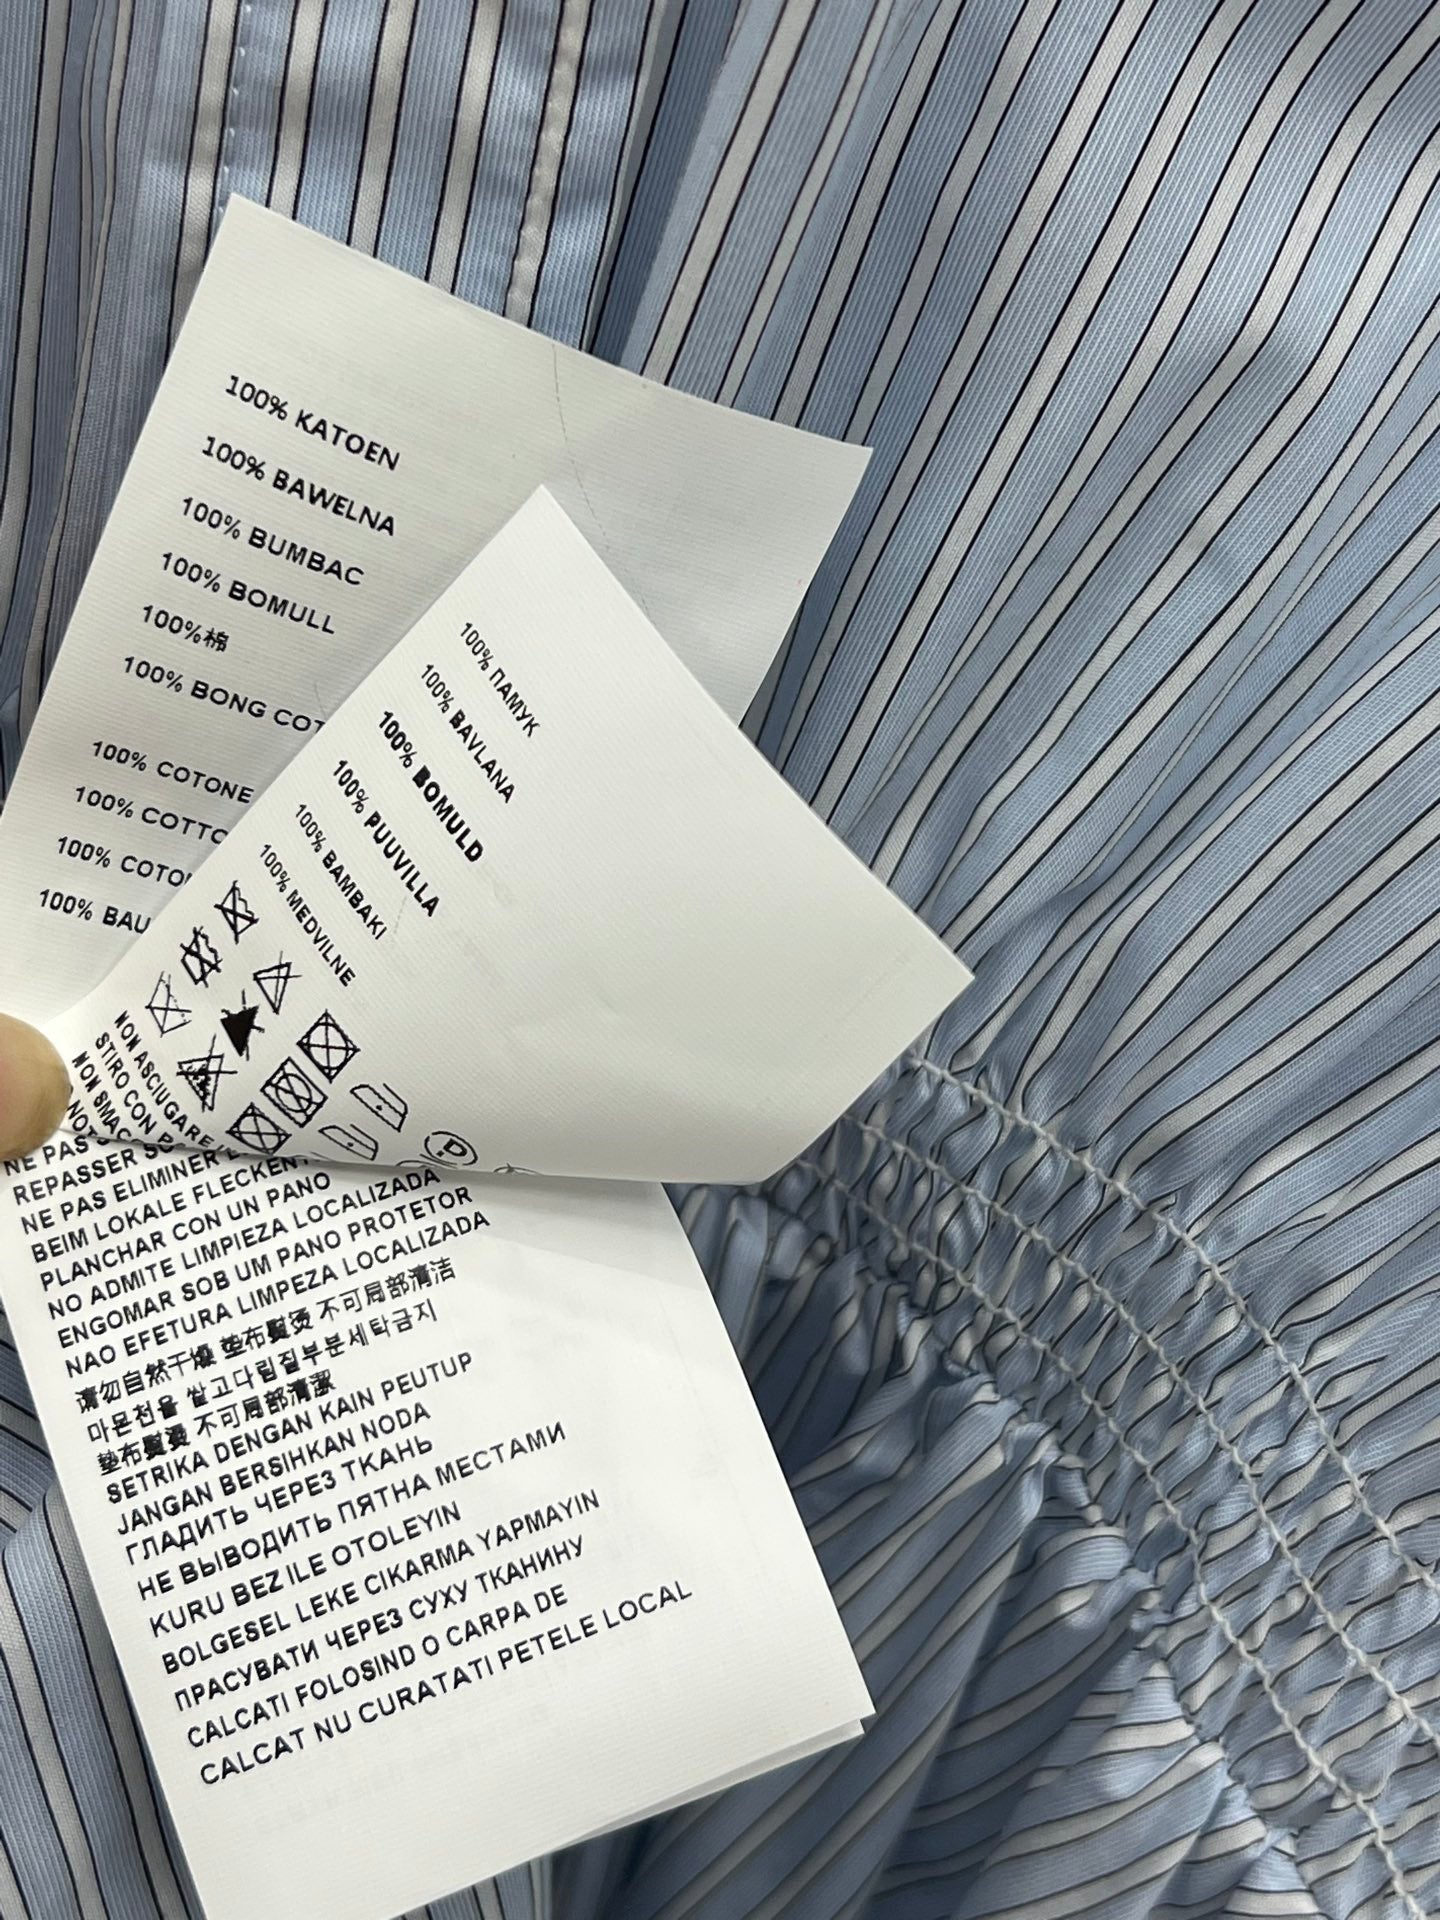 100% KATOEN
100% BAWELNA
100% BUMBAC
100% BOMULL
100%棉
100% BONG COT
100% COTONE
100% COTTO
100% COTO
100% BAU
100% ПАМУК
100% BAVLANA
100% BOMULD
100% PUUVILLA
100% BAMBAKI
100% MEDVILNE
NON ASCIUGARE
STIRO CON
NON SMAC
NOT
NE PAS
REPASSER
NE PAS ELIMINER
BEIM LOKALE FLECKEN
PLANCHAR CON UN PANO
NO ADMITE LIMPIEZA LOCALIZADA
ENGOMAR SOB UM PANO PROTETOR
NAO EFETURA LIMPEZA LOCALIZADA
请勿自然干燥 垫布熨烫 不可局部清洁
마른천을 깔고다림질부분세탁금지
墊布熨燙 不可局部清潔
SETRIKA DENGAN KAIN PEUTUP
JANGAN BERSIHKAN NODA
ГЛАДИТЬ ЧЕРЕЗ ТКАНЬ
НЕ ВЫВОДИТЬ ПЯТНА МЕСТАМИ
KURU BEZ ILE OTOLEYIN
BOLGESEL LEKE CIKARMA YAPMAYIN
ПРАСУВАТИ ЧЕРЕЗ СУХУ ТКАНИНУ
CALCATI FOLOSIND O CARPA DE
CALCAT NU CURATATI PETELE LOCAL